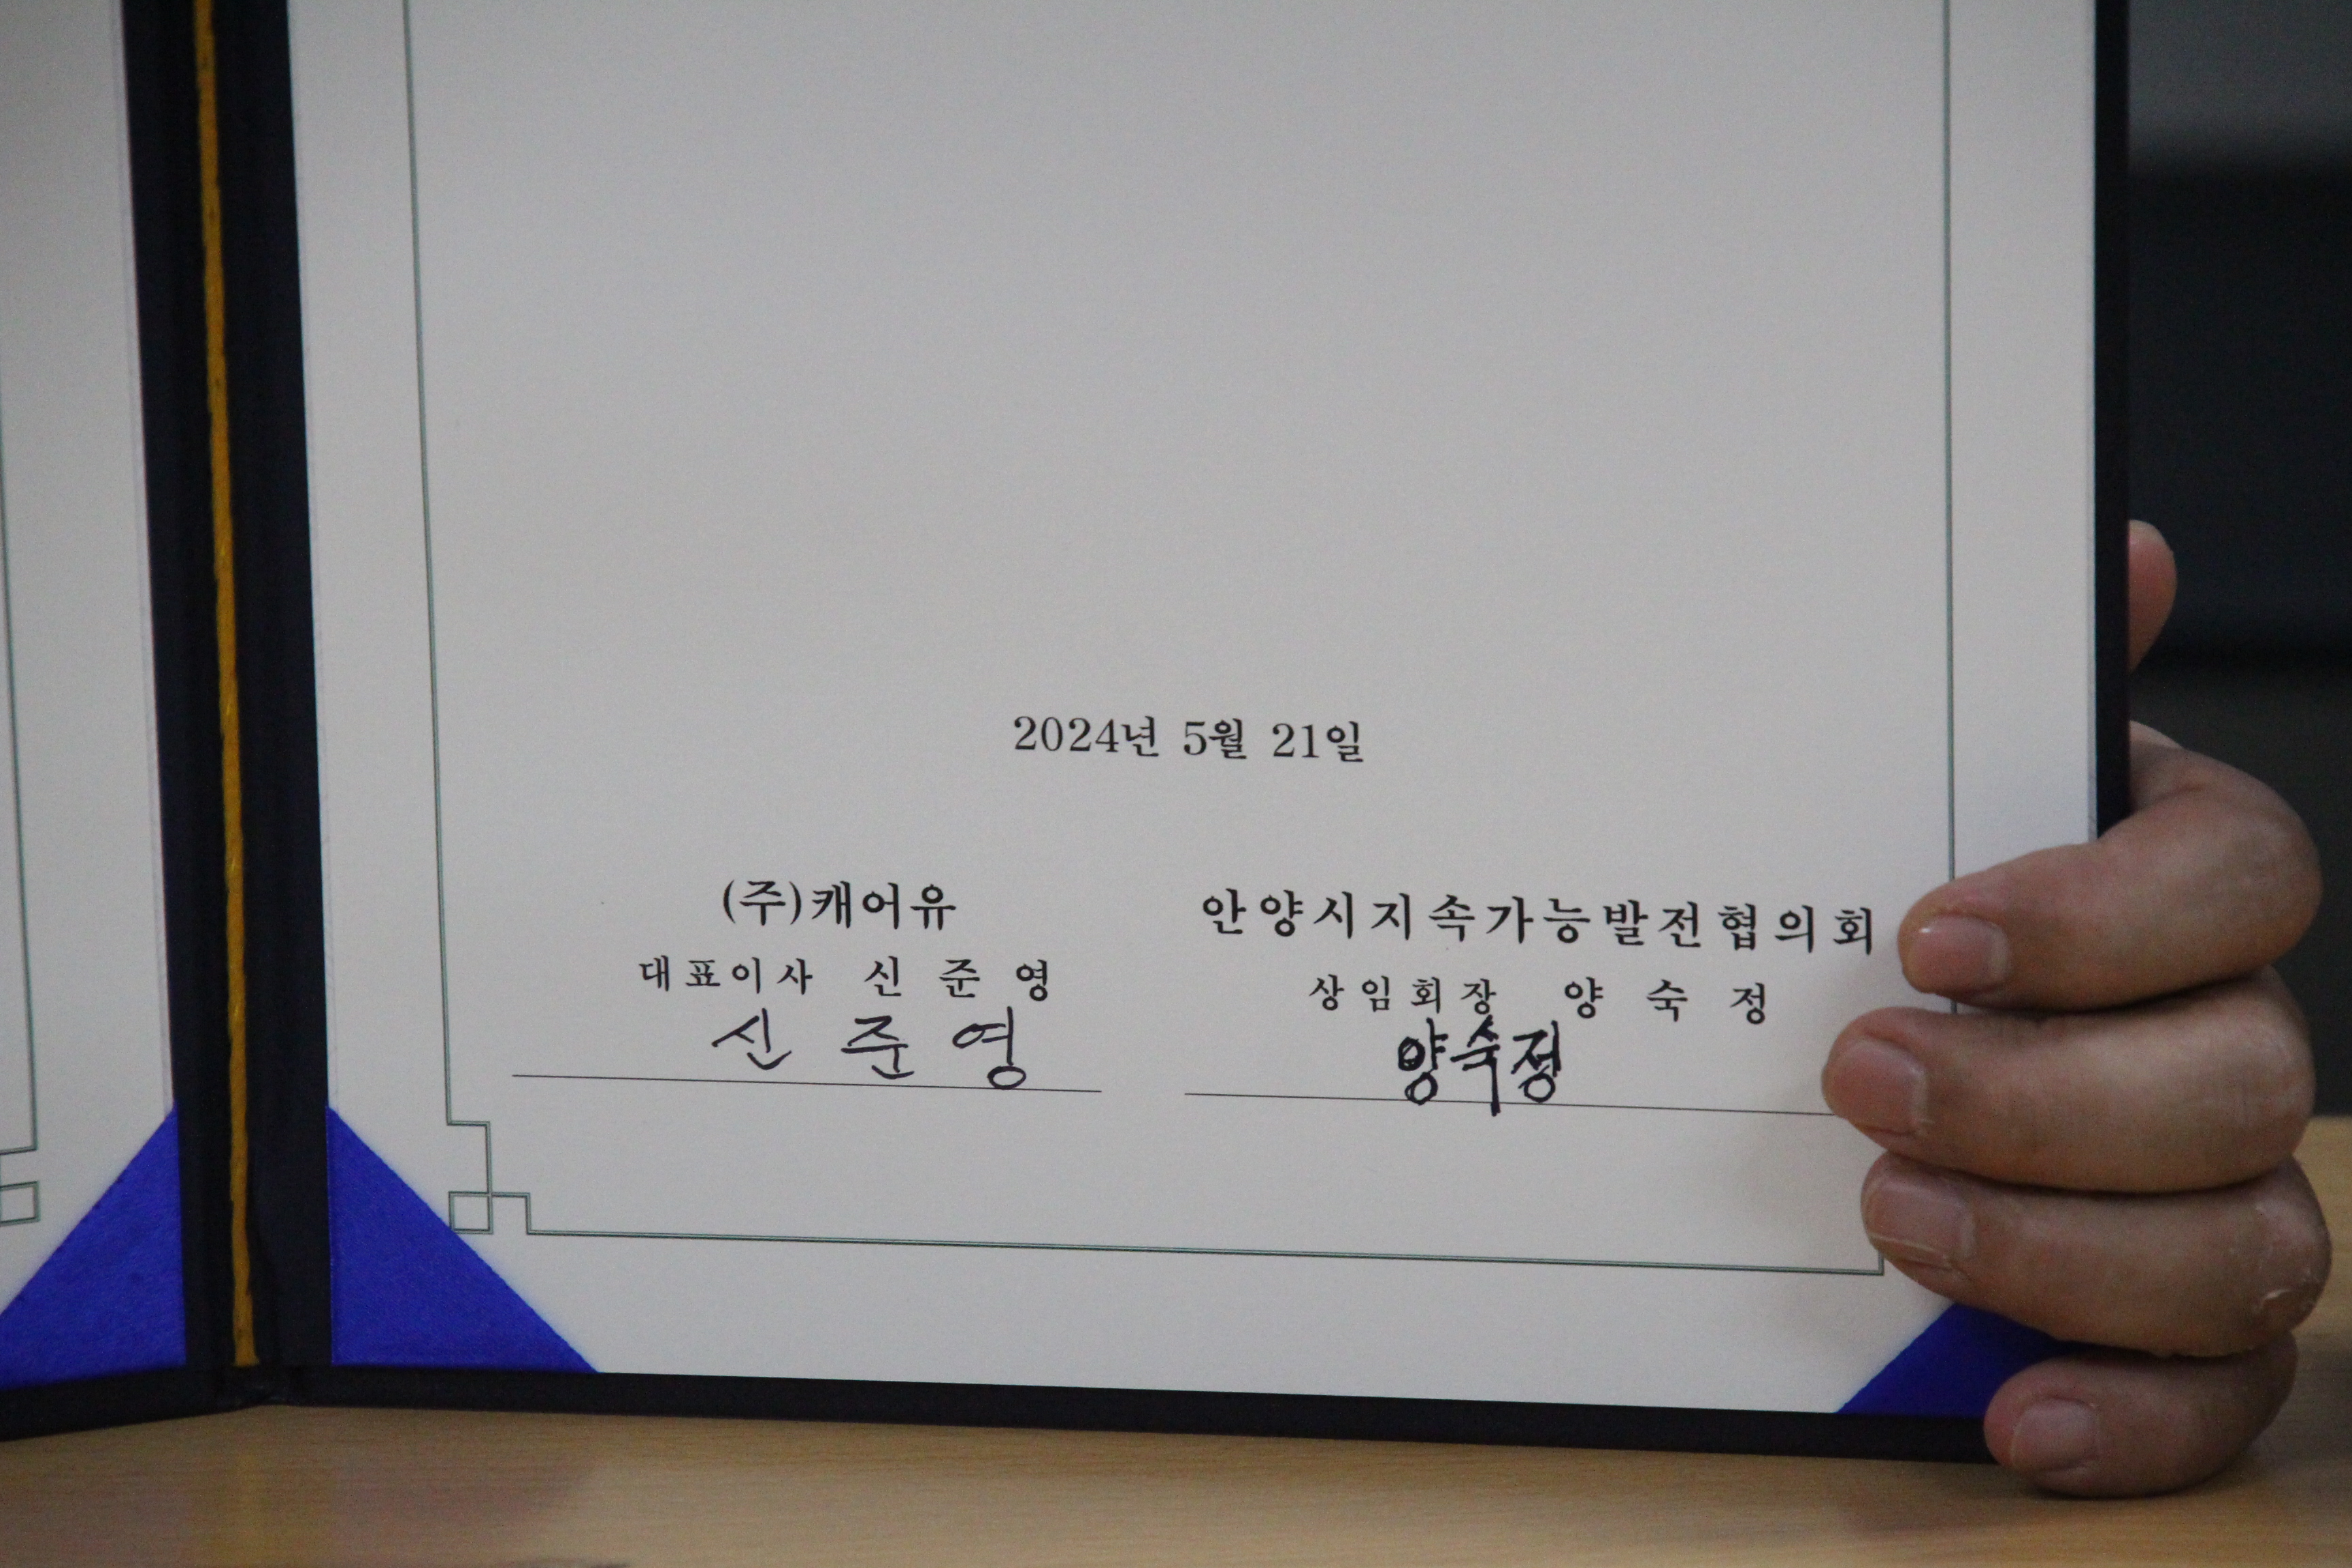 2024년 5월 21일
(주)캐어유
대표이사 신 준 영
신 준 영
안양시지속가능발전협의회
상임회장 양 숙 정
양숙정